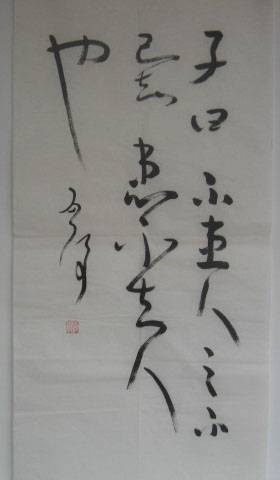 子曰不患人之不
己知患不知人
也